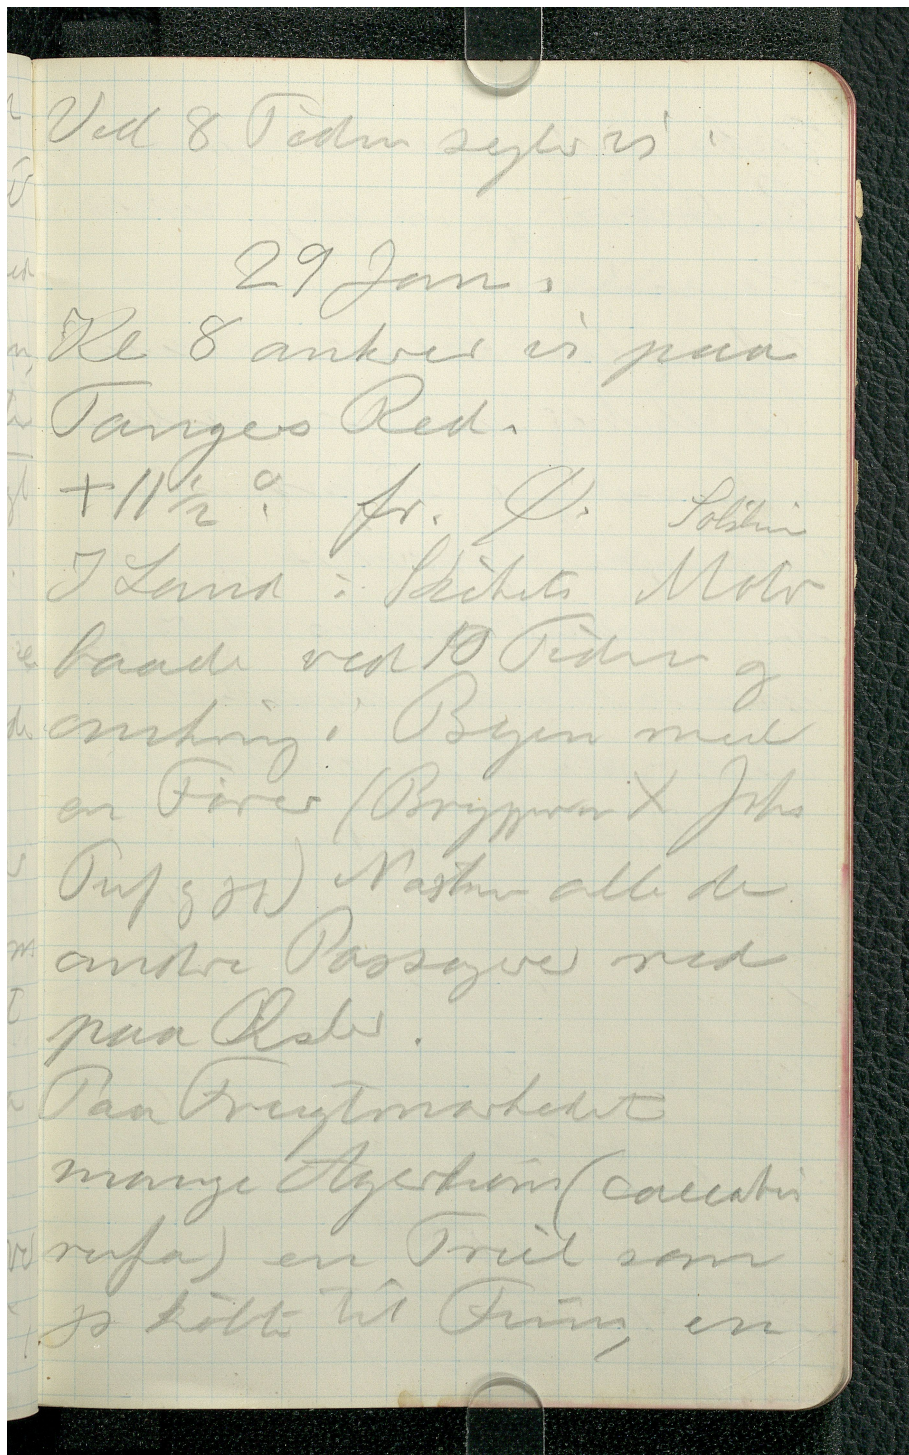 Ved 8 Tiden sejler vi.
29 Jan.
Kl 8 ankrer vi paa
Tangers Red.
+11½°. fr. Ø. Solskin
I Land i Skibets Motor
baade ved 10 Tiden og
omkring i Byen med
en Fører ( X Johs
og jeg) Næsten alle de
andre Passagerer red
paa Æsler.
Paa Frugtmarkedet
mange Agerhøns (caccabis
rufa) en Triel som
jeg købte til Finn, en